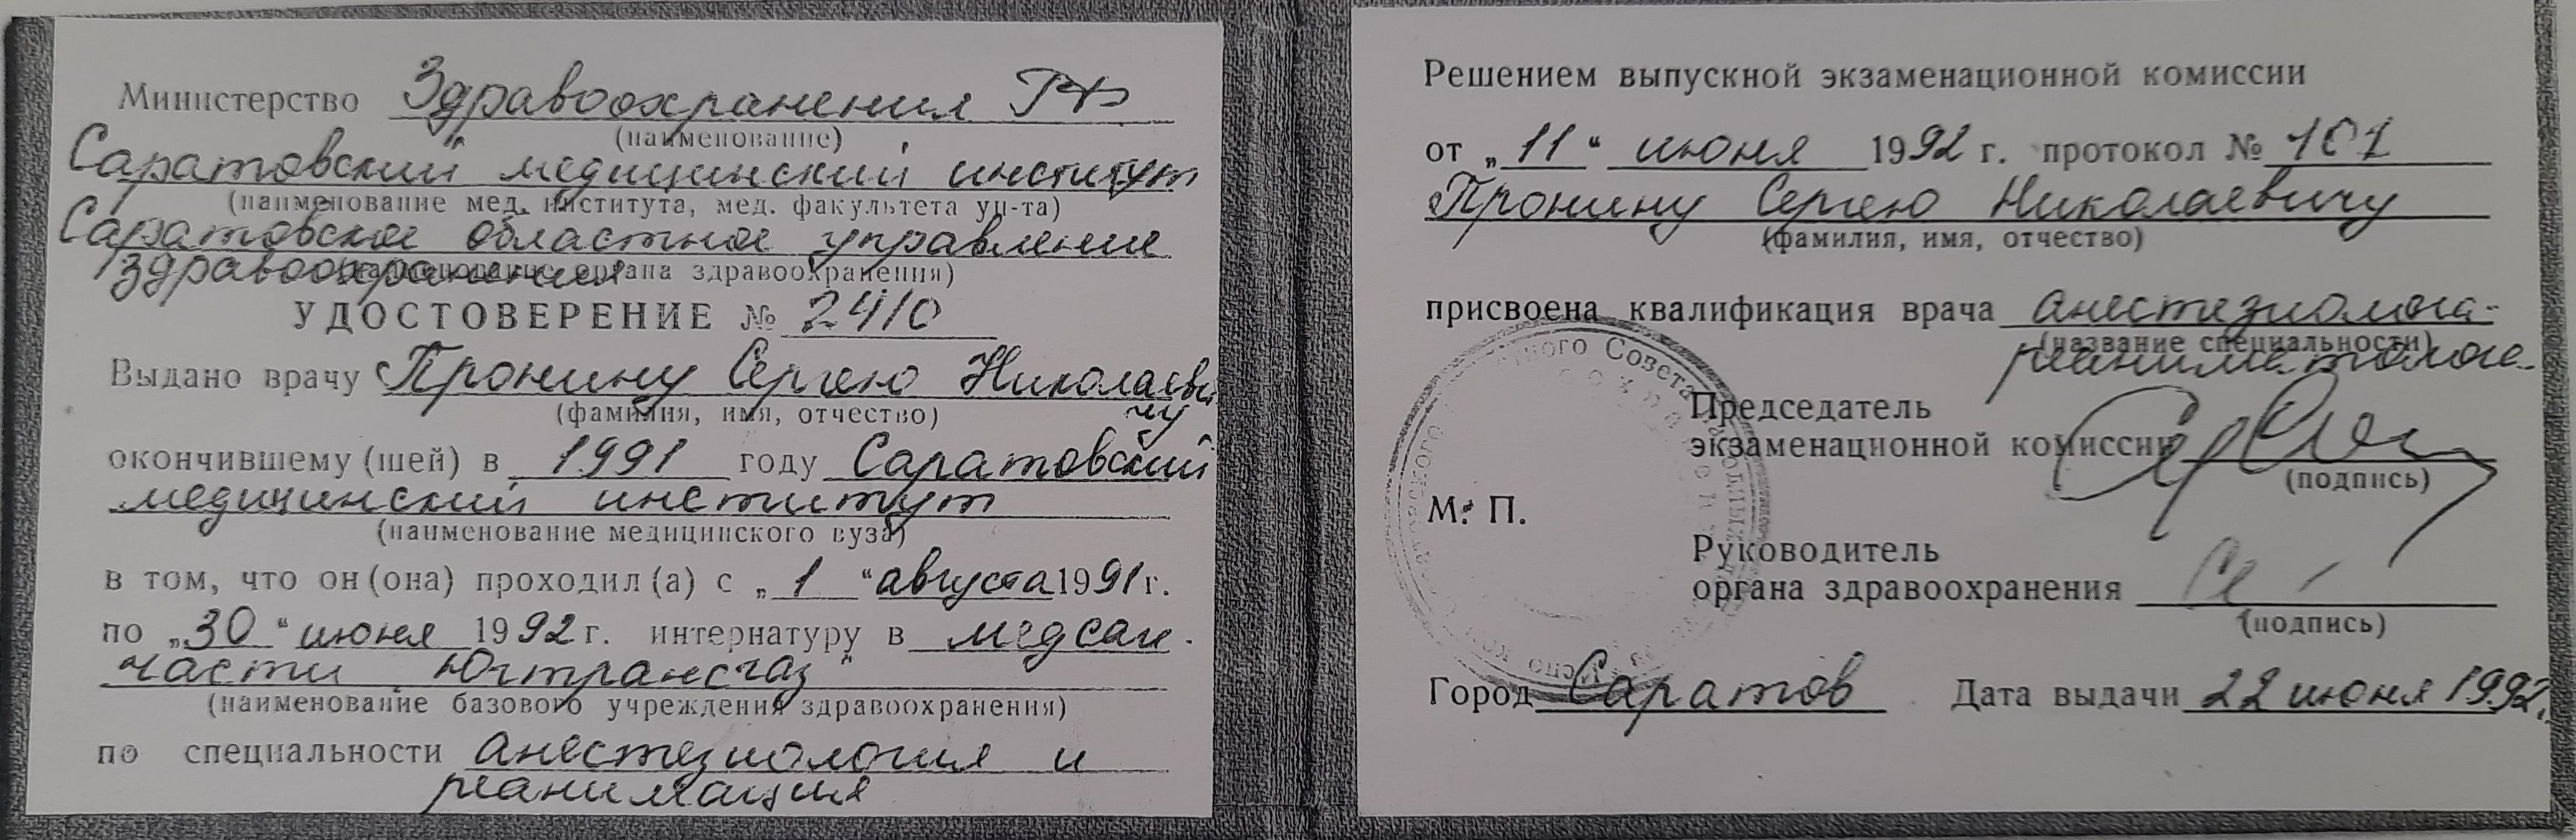 Министерство Здравоохранения РФ
(наименование)
Саратовский медицинский институт
(наименование мед. института, мед. факультета ун-та)
Саратовское областное управление
здравоохранения
органа здравоохранения)
УДОСТОВЕРЕНИЕ № 2410
Выдано врачу Пронину Сергею Николаеви
чу
(фамилия, имя, отчество)
окончившему (шей) в 1991 году Саратовский
медицинский институт
(наименование медицинского вуза)
в том, что он (она) проходил (а) с „1“ августа 1991 г.
по „30“ июня 1992 г. интернатуру в медсан.
части „Югтрансгаз"
(наименование базового учреждения здравоохранения)
по специальности анестезиология и
реанимация
Решением выпускной экзаменационной комиссии
от „11“ июня 1992 г. протокол № 101
Пронину Сергею Николаевичу
(фамилия, имя, отчество)
присвоена квалификация врача анестезиолога-
(название специальности)
реаниматолога
Председатель
экзаменационной комиссии
(подпись)
М. П.
Руководитель
органа здравоохранения
(подпись)
Город Саратов Дата выдачи 22 июня 1992г.
Совета народных